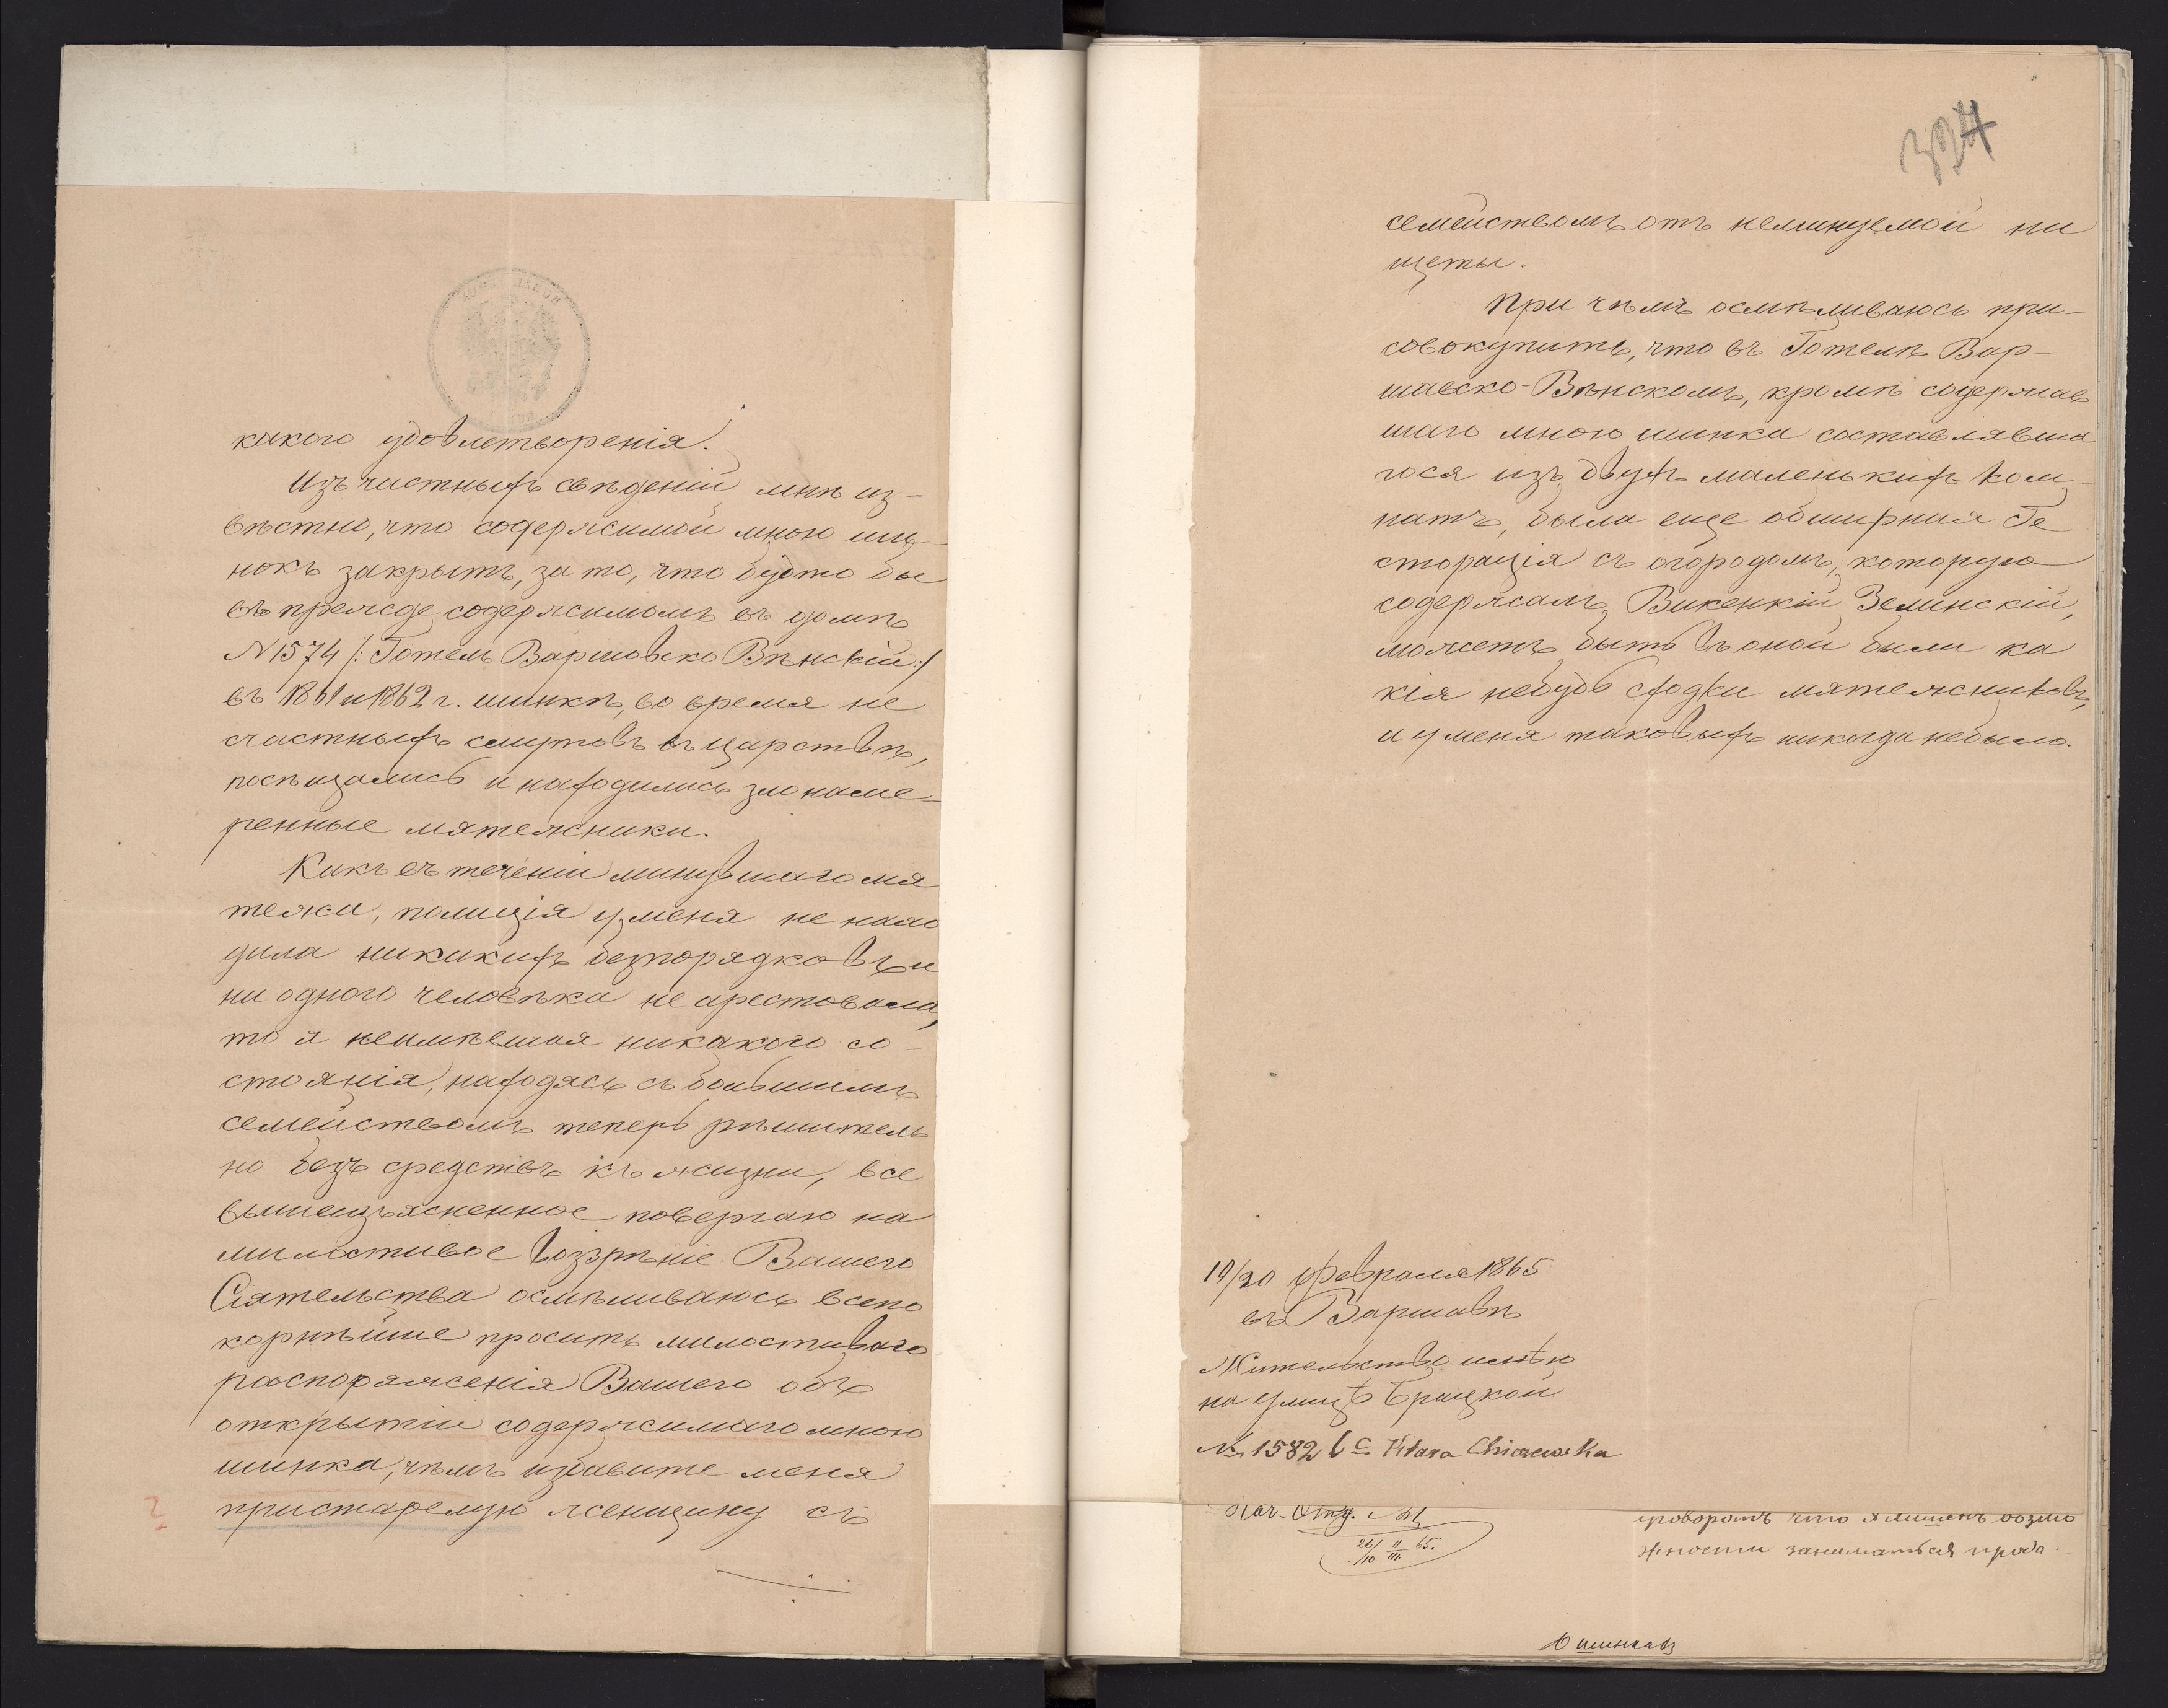 какого удовлетворенія.
Изъ частныхъ свѣденій мнѣ из-
вѣстно, что содержимой мною ши-
нокъ закрытъ, за то, что будто бы
въ прежде содержимомъ въ домѣ
№ 1574 /: Готель Варшовско Вѣнскій :/
въ 1861 и 1862 г. шинкѣ, во время не
счастныхъ смутовъ въ царствѣ,
посѣщались и находились злонаме-
ренные мятежники.
Какъ въ теченіи минувшаго мя
тежа, полиція у меня не нахо
дила никакихъ безпорядковъ и
ни одного человѣка не арестовала,
то я неимѣвшая никакого со-
стоянія, находясь съ большимъ
семействомъ теперь рѣшитель
но безъ средствъ къ жизни, все
вышеизъясненное повергаю на
милостивое воззрѣніе Вашего
Сіятельства осмѣливаюсь всепо
корнѣйше просить милостиваго
распоряженія Вашего объ
открытіи содержимаго мною
шинка, чѣмъ избавите меня
пристарелую женщину съ
324
семействомъ отъ неминуемой ни
щеты.
При чѣмъ осмѣливаюсь при-
совокупить, что въ Готелѣ Вар-
шавско-Вѣнскомъ, кромѣ содержав
шаго мною шинка составлявша
гося изъ двухъ маленькихъ ком-
натъ, была еще обширная Ре
сторація съ огородомъ, которую
содержалъ Викенкій Зелинскій,
можетъ быть въ оной были ка
кія небудь сходки мятежниковъ,
а у меня таковыхъ никогда небыло.
/20 Февраля 1865
въ Варшавѣ
Жительство имѣю
на улицѣ Брацкой
№ 1582 Chiczewska
Нач. Отд.
26/10 II/III 65.
что я лишенъ возмо
жности заниматься прода
О шинкахъ